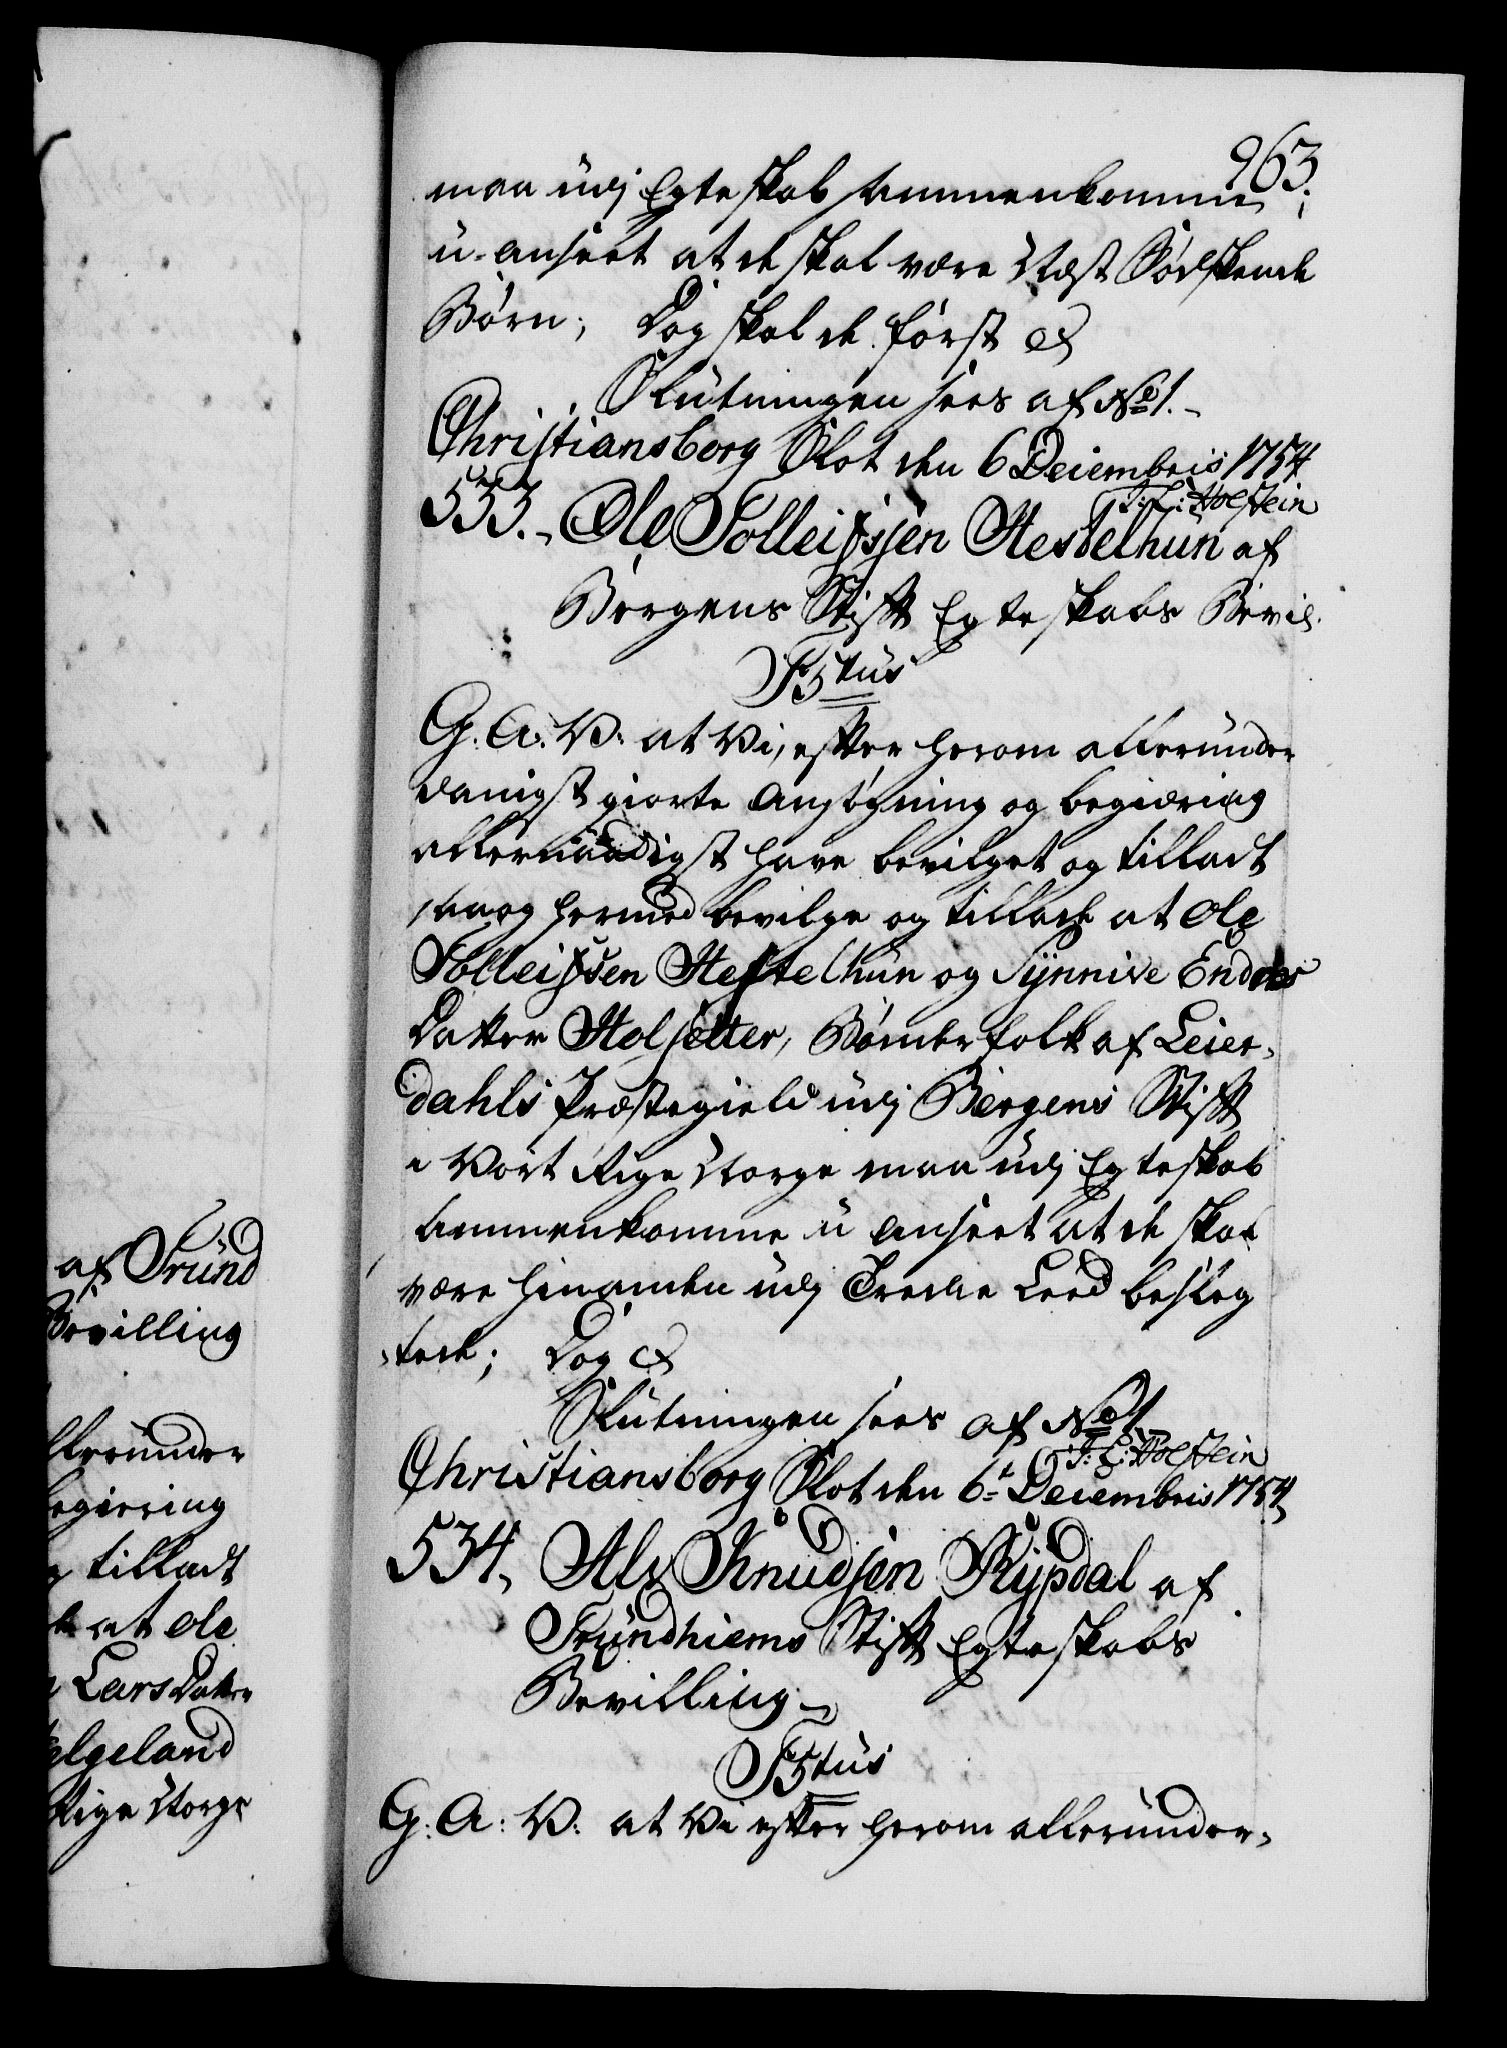 963.
maa udj Egteskab sammenkomme,
u-anseet at de skal være Næst Sødskende
Børn; Dog skal de først &
Slutningen sees af No 1.
Christiansborg Slot den 6 Decembris 1754
J: L: Holstein
533. Ole Tolleifssen Hestethun af
Bergens Stift Egteskabs Bevil.
F5tus
G. A. V. at Vi, efter herom allerunder
danigst giorte Ansøgning og begiæring
allernaadigst have bevilget og tilladt
saa og hermed bevilge og tillade at Ole
Tolleifssen Hestethun og Synnive Enders
Datter Stolsetter, Bønderfolk af Leier-
dahls Præstegield udj Bergens Stift
i Vort Rige Norge maa udj Egteskab
sammenkomme u anseet at de skal
være hinanden udj Tredie Leed beslæg
tede; Dog &
Slutningen sees af No 1
J: L: Holstein
Christiansborg Slot den 6t Decembris 1754
534. Alv Knudsen Rypdal af
Trundhiems Stift Egteskabs
Bevilling
F5tus
G. A: V. at Vi efter herom allerunder-
af Trund
Bevilling
allerunder
begiering
og tilladt
at Ole
Lars Datter
Helgeland
Rige Norge